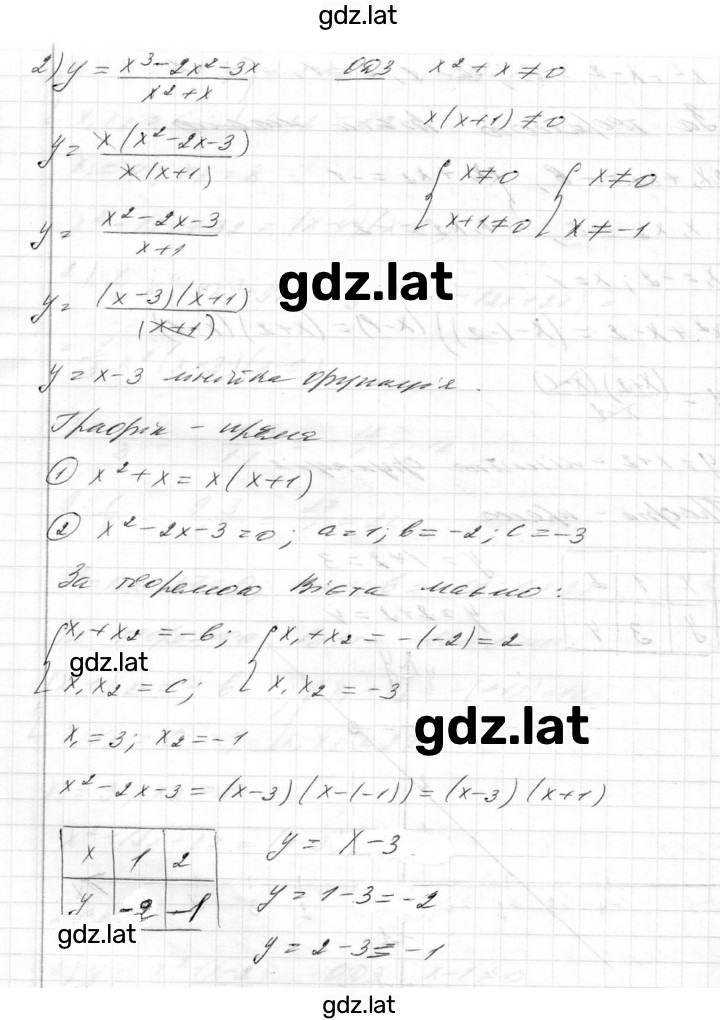 gdz.lat
2) y = (x³-2x²-3x)/(x²+x) ОДЗ x²+x≠0
x(x+1)≠0
y = x(x²-2x-3)/x(x+1)
{x≠0 {x≠0
x+1≠0 x≠-1
y = (x²-2x-3)/(x+1)
gdz.lat
y = (x-3)(x+1)/(x+1)
y = x-3 лінійна функція.
Графік - пряма
① x²+x = x(x+1)
② x²-2x-3=0; a=1; b=-2; c=-3
За теоремою Вієта маємо:
{x₁+x₂=-b; {x₁+x₂=-(-2)=2
gdz.lat
x₁x₂=c; x₁x₂=-3
gdz.lat
x₁=3; x₂=-1
x²-2x-3=(x-3)(x-(-1))=(x-3)(x+1)
x 1 2 y = x-3
y -2 -1 y = 1-3=-2
gdz.lat
y = 2-3=-1
gdz.lat